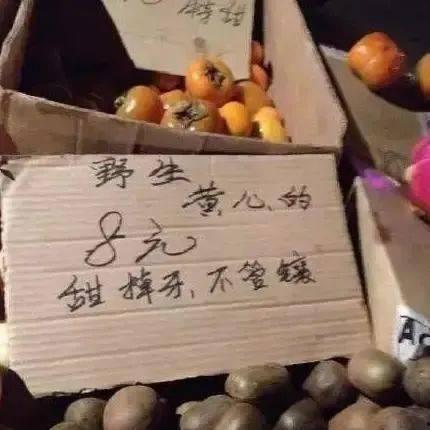 特甜
野生
黄心的
8元
甜掉牙、不管镶
A